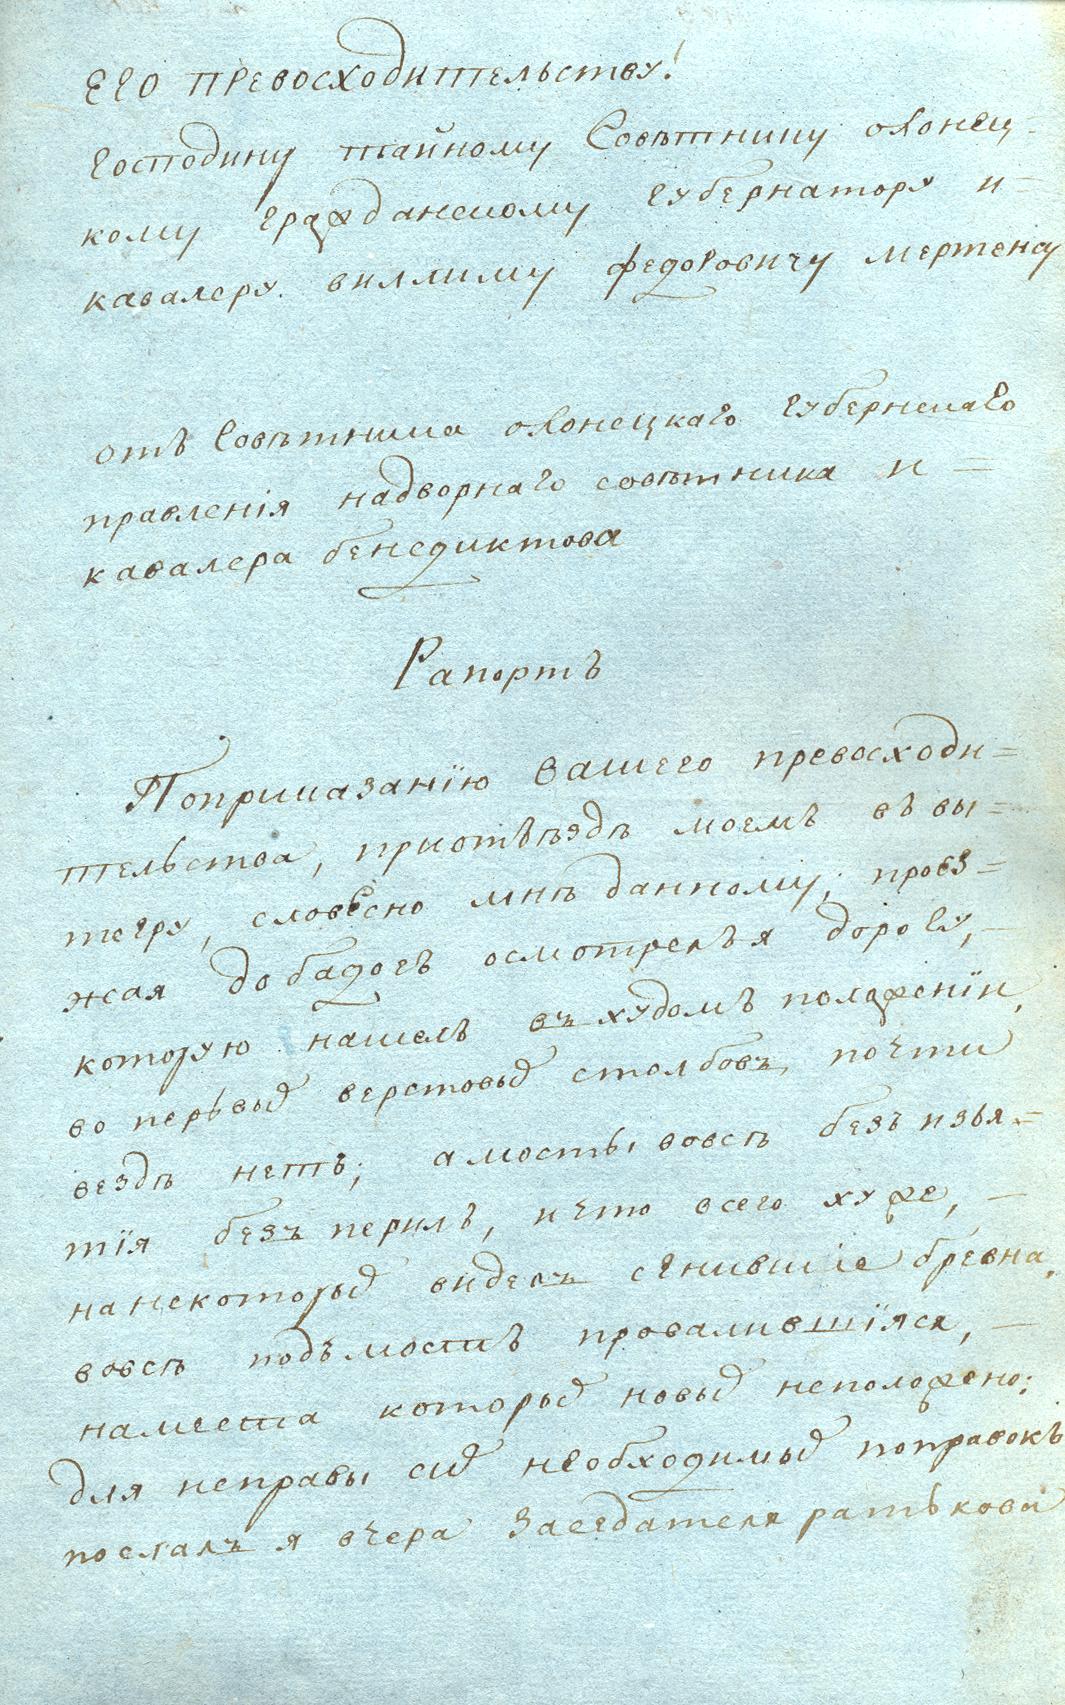 Его превосходительству!
Господину тайному Советнику олонец-
кому гражданскому губернатору и=
кавалеру виллиму федоровичу мертенсу
отъ Советника олонецкаго губернскаго
правленія надворнаго советника и=
кавалера бенедиктова
Рапортъ
Поприказанїю вашего превосходи=
тельства, приотъѣздѣ моемъ въ вы=
тегру, словесно мнѣ данному; проез=
жая до бадогъ осмотрелъ я дорогу,-
которую нашелъ въ худомъ положенїи,
во первыхъ верстовыхъ столбовъ, почти
вездѣ нетъ; а мосты вовсѣ безъ изъя=
тїя безъ перилъ, и что всего хуже,-
на некоторыхъ виделъ сгнившїе бревна,
вовсѣ подъ мостъ провалившїяся,-
на места которыхъ новыхъ неположено:
для исправы сихъ необходимыхъ поправокъ
послалъ я вчера Заседателя ратькова